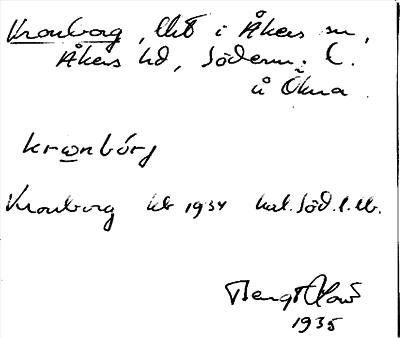 Kronborg, lht i Åkers sn,
Åkers hd, Söderm. l.
å Ökna
krωnbórj
Kronborg kb 1934 hal. Söd. l. lk.
Bengt Olov
1935